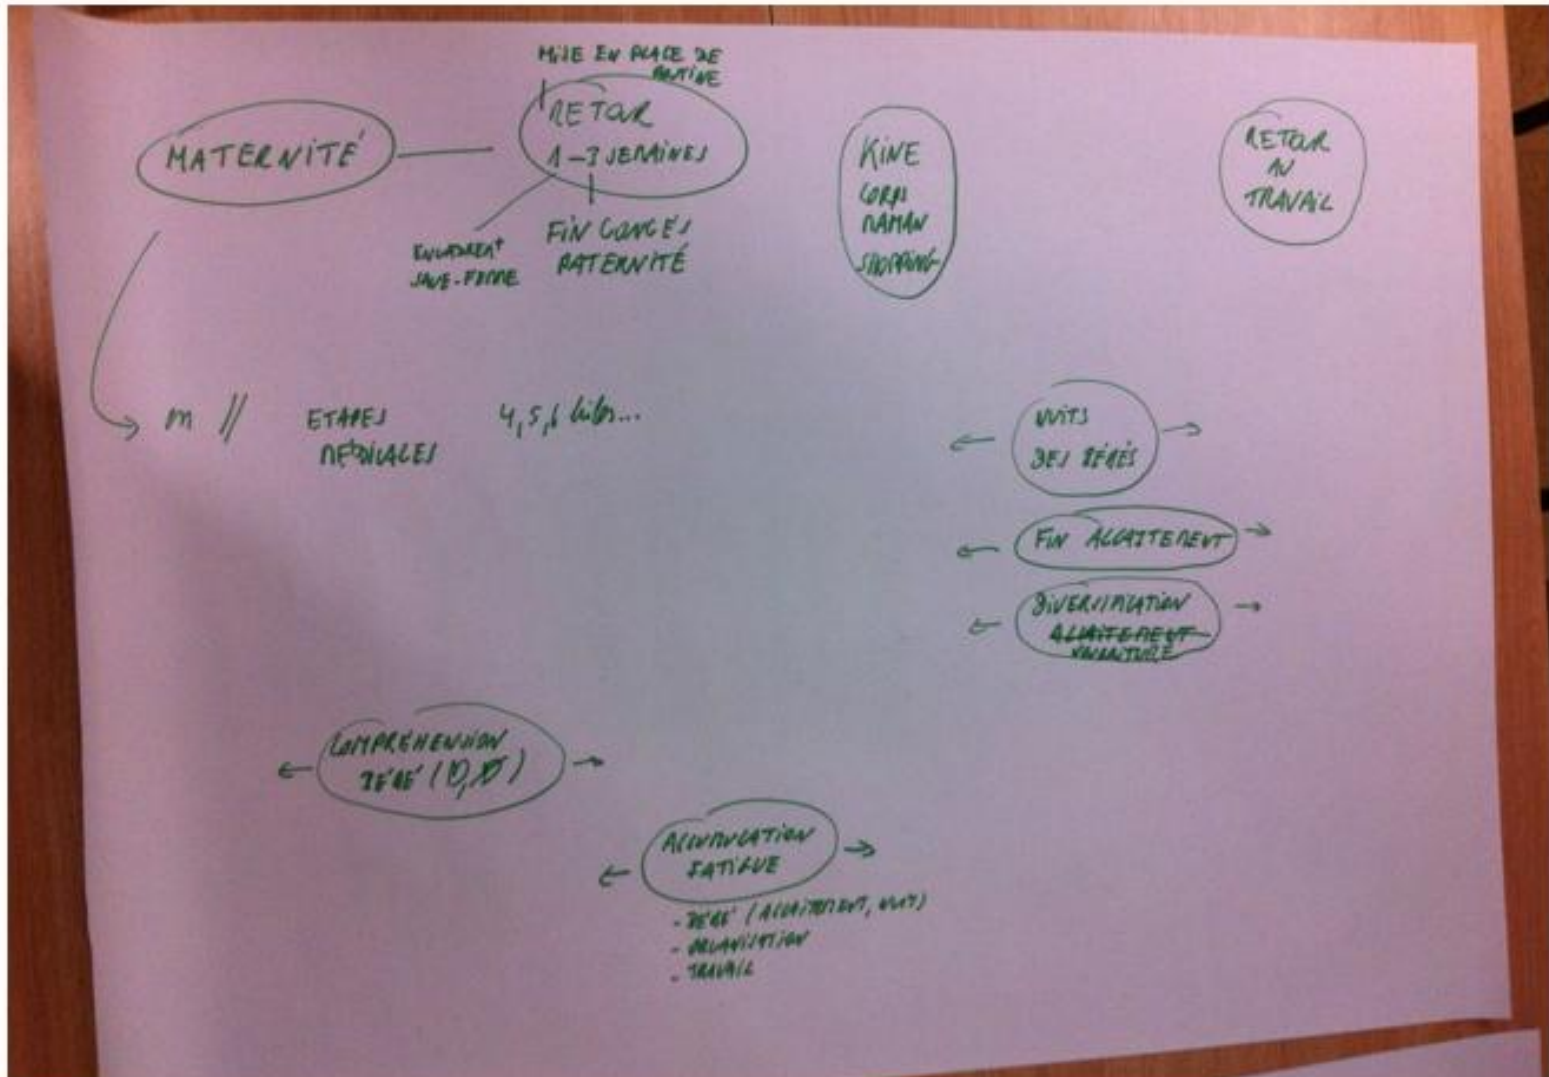 MISE EN PLACE DE
ROUTINE
MATERNITÉ
RETOUR
1-3 SEMAINES
ENCADREMT
SAGE-FEMME
FIN CONGÉS
PATERNITÉ
KINE
CORPS
MAMAN
SHOPPING
RETOUR
AU
TRAVAIL
m //
ETAPES
MÉDICALES
4,5,6 kilos...
NUITS
DES BÉBÉS
FIN ALLAITEMENT
DIVERSIFICATION
ALLAITEMENT
NOURRITURE
COMPRÉHENSION
BÉBÉ
ACCUMULATION
FATIGUE
- BÉBÉ (ALLAITEMENT, NUIT)
- ORGANISATION
- TRAVAIL